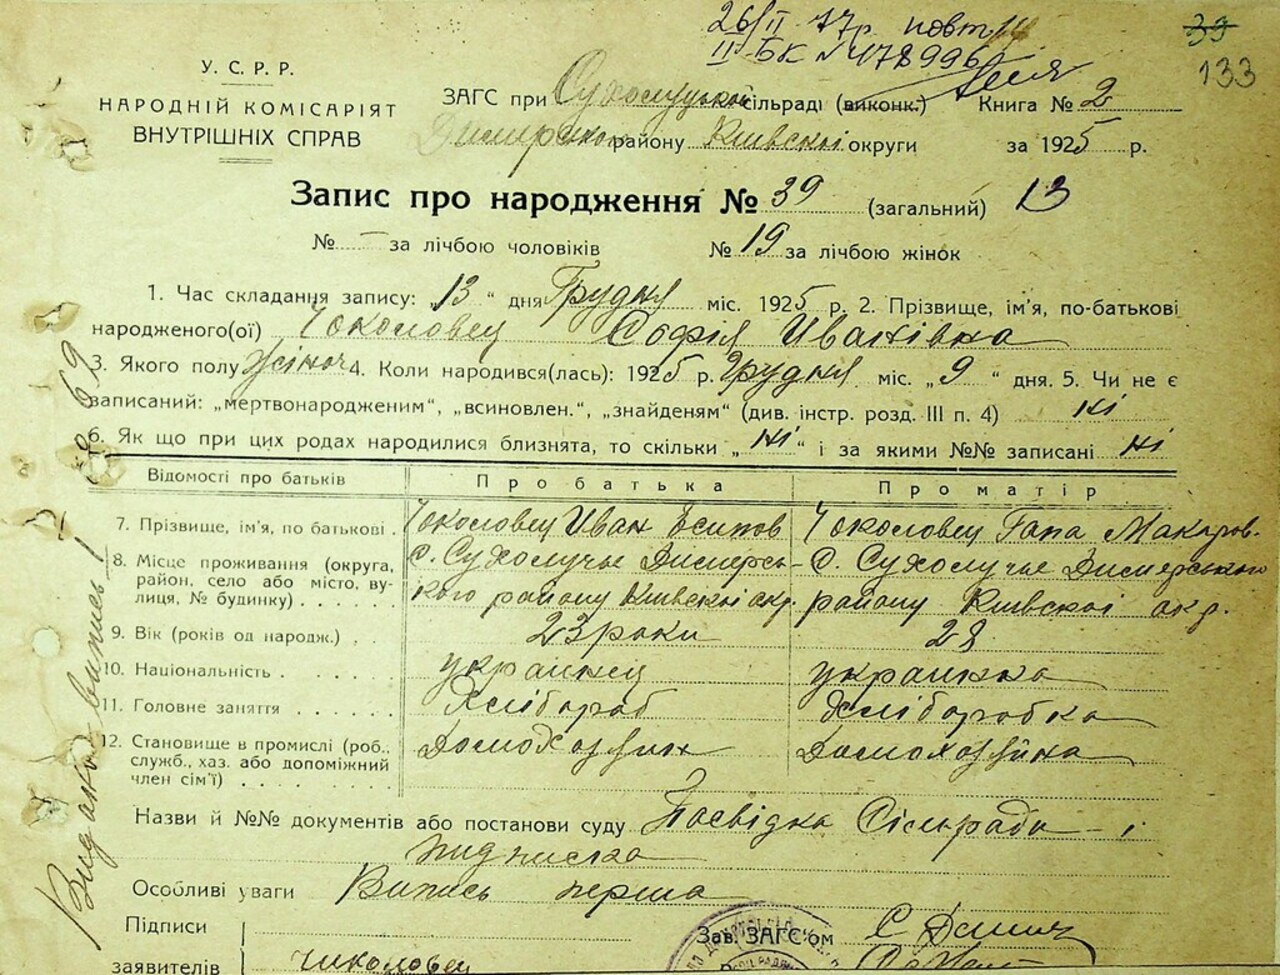 26/II 77р. повт.
II-БК № 478996
39
133
У. С. Р. Р.
НАРОДНІЙ КОМІСАРІЯТ
ВНУТРІШНІХ СПРАВ
ЗАГС при Сухолуцькой сільраді (виконк.) Книга № 2
Димерсько району Київскоі округи за 1925 р.
Запис про народження № 39 (загальний) 13
№ - за лічбою чоловіків № 19 за лічбою жінок
1. Час складання запису: „13" дня Грудня міс. 1925 р. 2. Прізвище, ім'я, по-батькові
народженого(ої) Чоколовец Софія Иванівна
3. Якого полу жіноч 4. Коли народився(лась): 1925 р. Грудня міс. „9" дня. 5. Чи не є
записаний: „мертвонародженим", „всиновлен.", „знайденям" (див. інстр. розд. III п. 4) ні
6. Як що при цих родах народилися близнята, то скільки „ні" і за якими №№ записані ні
Відомості про батьків Про батька Про матір
7. Прізвище, ім'я, по батькові . Чоколовец Иван Есипов Чоколовец Гапа Макаров.
8. Місце проживання (округа, район, село або місто, вулиця, № будинку) . . . . .
с. Сухолучье Димерсь-
кого району Київскоі окр.
с. Сухолучье Димерського
району Київскоі окр.
9. Вік (років од народж.) . 23 роки 28
10. Національність . . . . . украинец украинка
11. Головне заняття . . . . . . Хлібороб Хліборобка
12. Становище в промислі (роб., служб., хаз. або допоміжний член сім'ї) . . . . . . . . Домохозяин Домохозяйка
Назви й №№ документів або постанови суду Посвідка Сільради і
підписка
Особливі уваги Випись перша
Підписи
заявителів Чиколовец
Зав. ЗАГС'ом
Видано випись